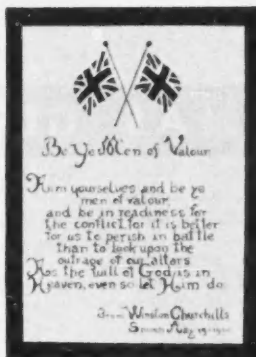 Be Ye Men of Valour
Arm yourselves and be ye
men of valour,
and be in readiness for
the conflict for it is better
for us to perish in battle
than to look upon the
outrage of our altars
As the will of God is in
Heaven, even so let Him do
From Winston Churchill's